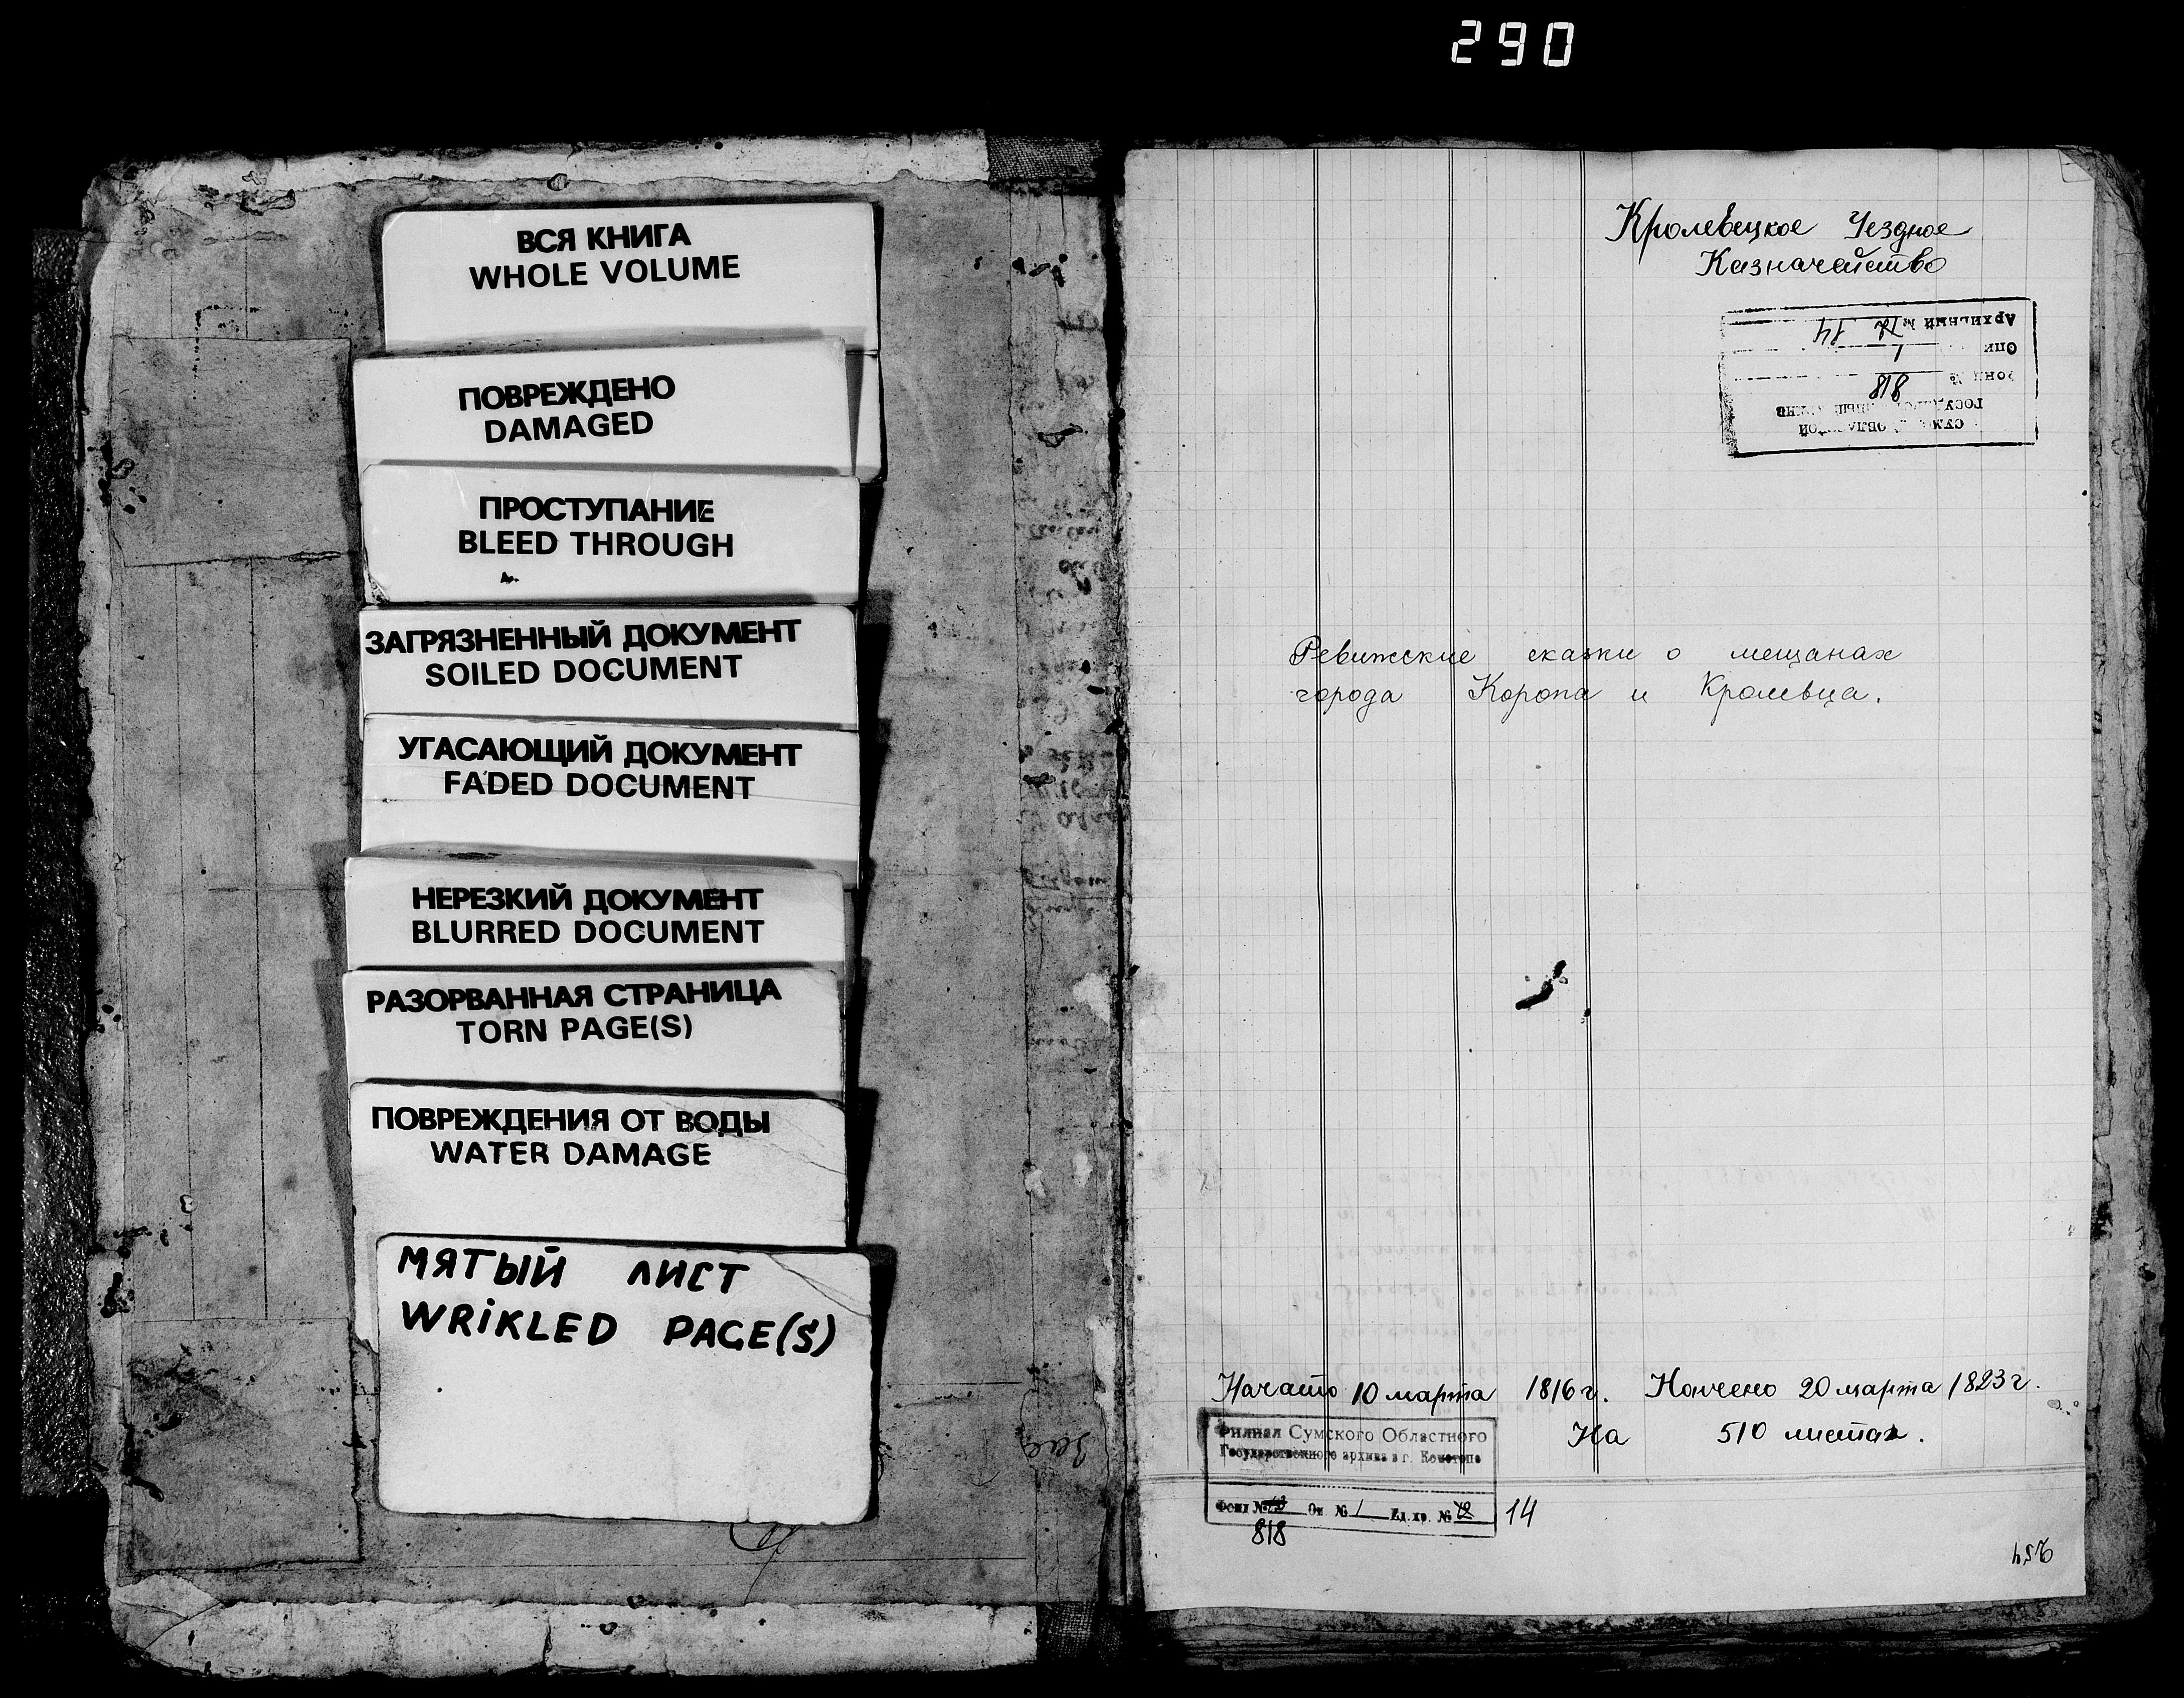 290
ВСЯ КНИГА
WHOLE VOLUME
ПОВРЕЖДЕНО
DAMAGED
ПРОСТУПАНИЕ
BLEED THROUGH
ЗАГРЯЗНЕННЫЙ ДОКУМЕНТ
SOILED DOCUMENT
УГАСАЮЩИЙ ДОКУМЕНТ
FADED DOCUMENT
НЕРЕЗКИЙ ДОКУМЕНТ
BLURRED DOCUMENT
РАЗОРВАННАЯ СТРАНИЦА
TORN PAGE(S)
ПОВРЕЖДЕНИЯ ОТ ВОДЫ
WATER DAMAGE
МЯТЫЙ ЛИСТ
WRIKLED PAGE(S)
Кролевецкое Уездное
Казначейство
818
1
АРХИВНЫЙ № 12 14
Ревижские сказки о мещанах
города Коропа и Кролевца.
Начато 10 марта 1816 г. Кончено 20 марта 1823 г.
На 510 листах.
Филиал Сумского Областного
Государственного архива в г. Конотопе
Фонд № Оп № 1 Ед.хр. № 12 14
818
254